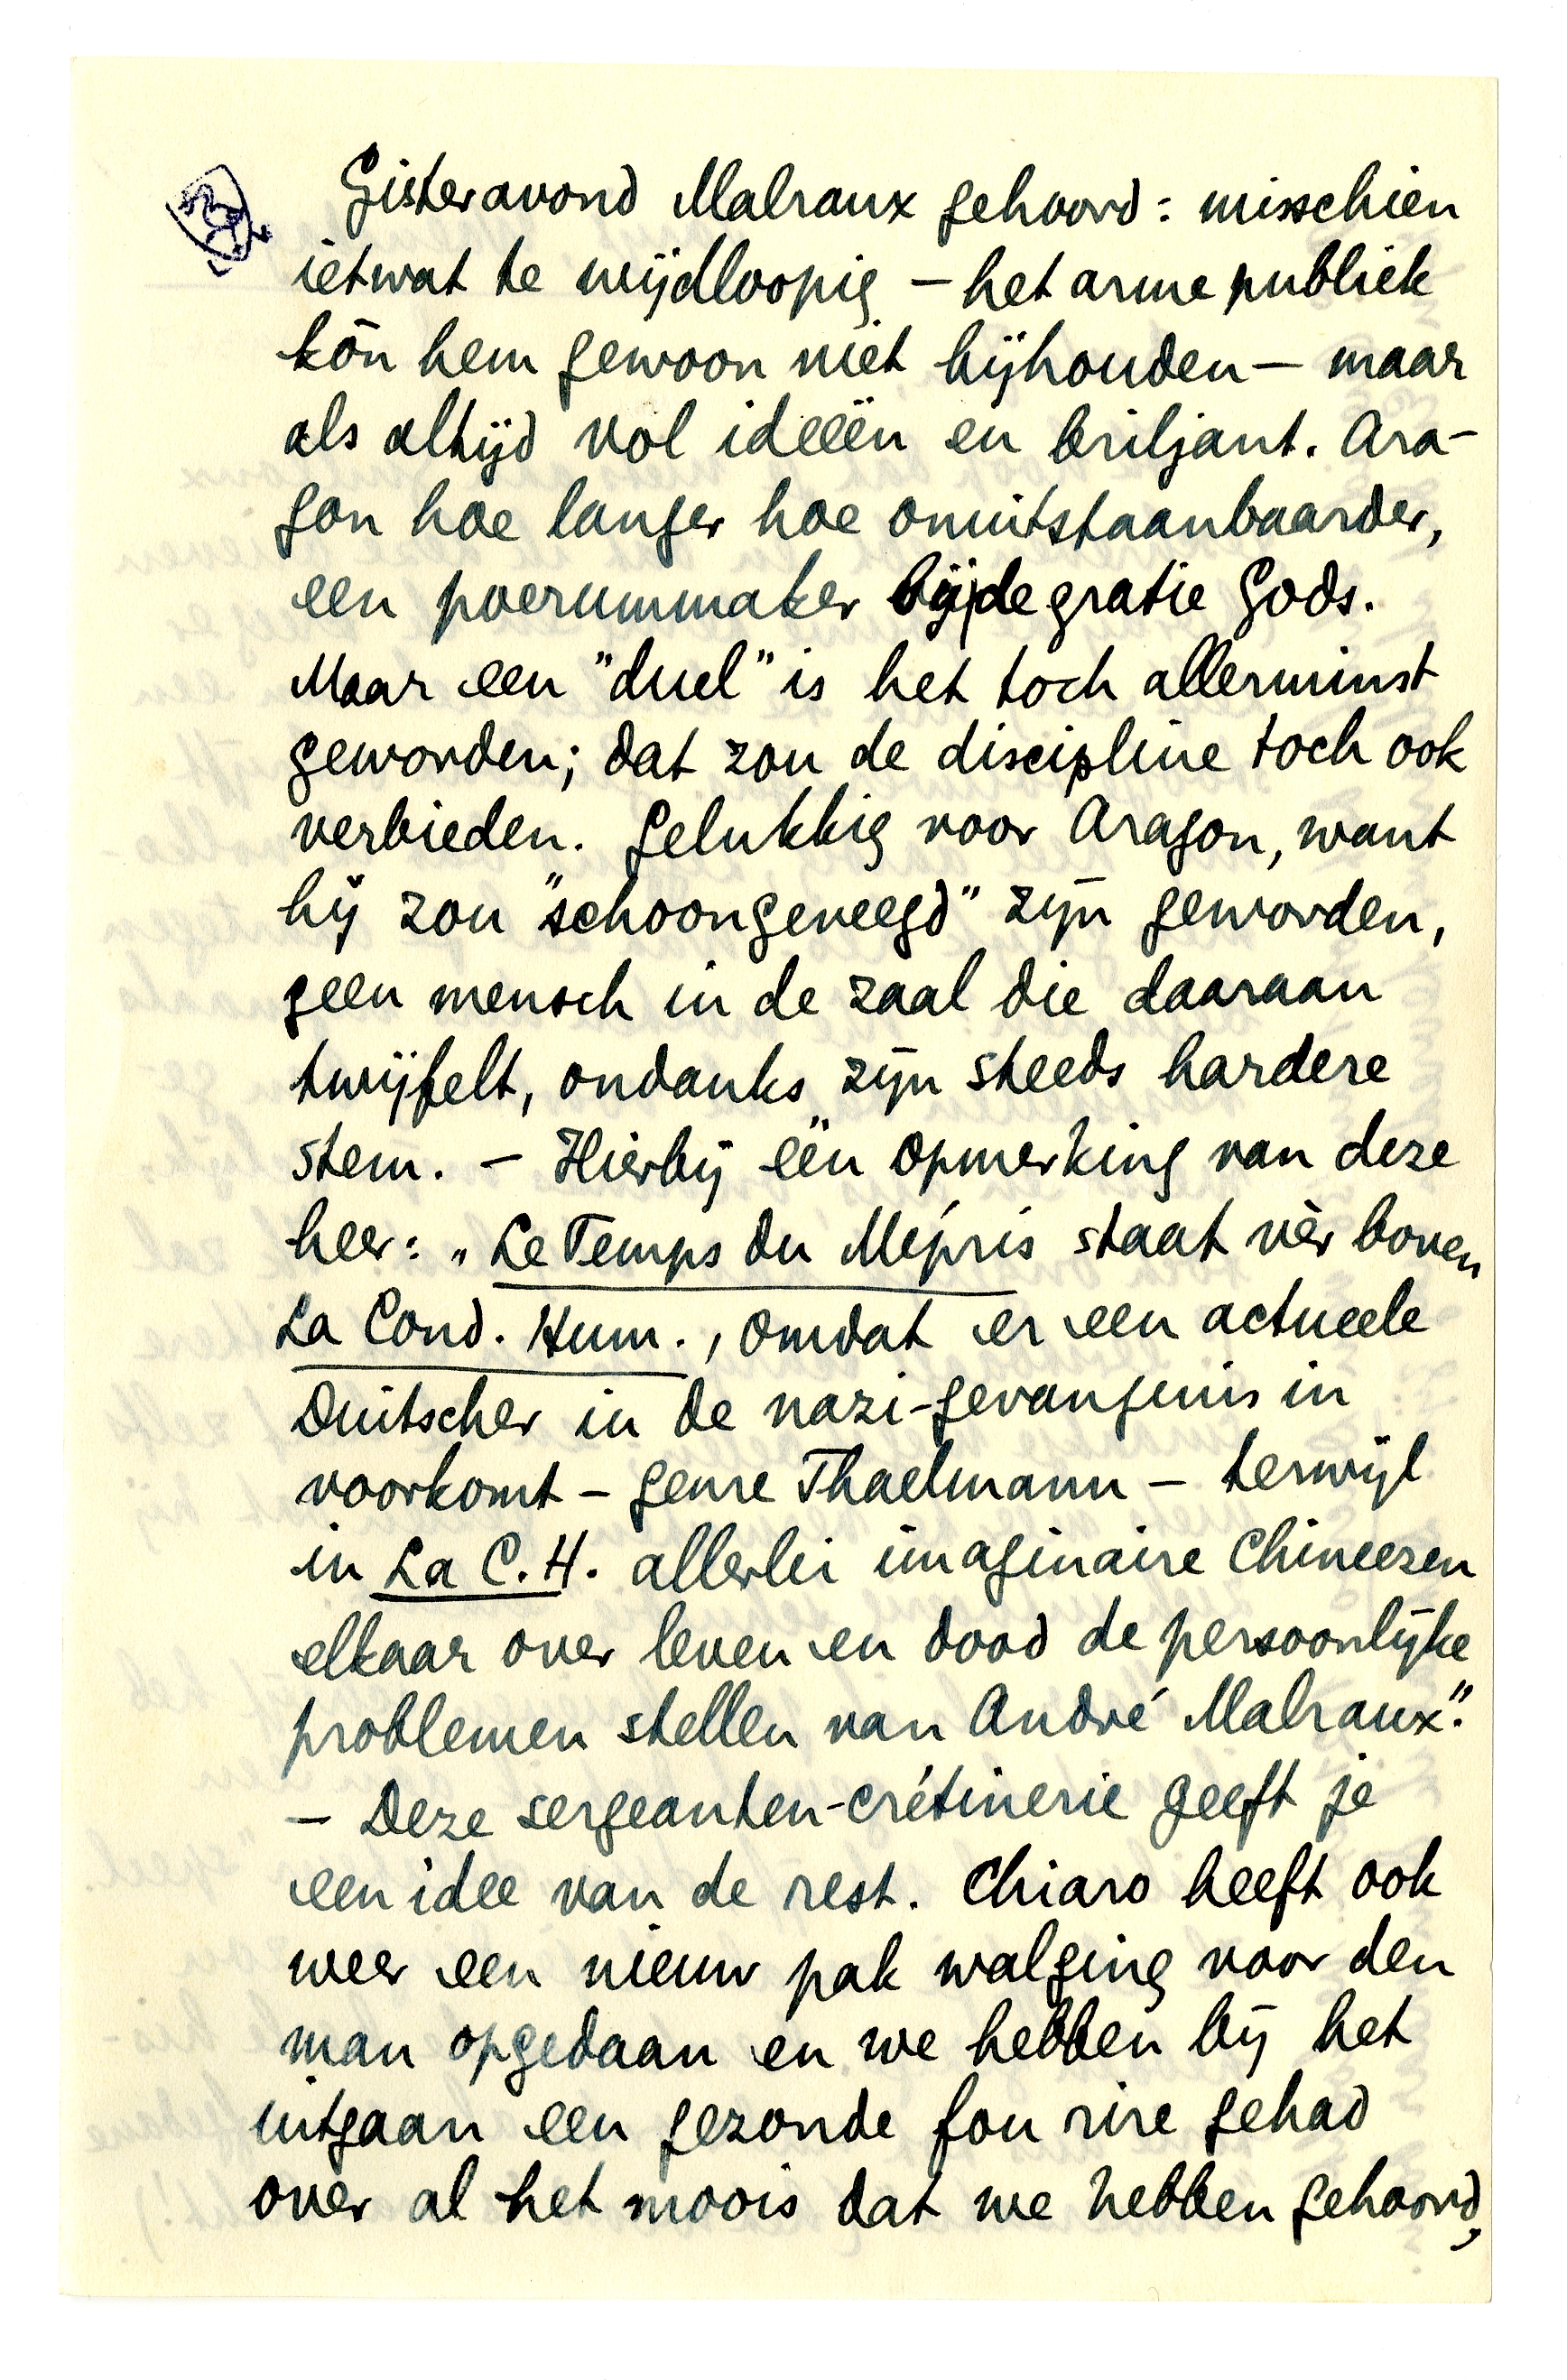 Gisteravond Malraux gehoord: misschien
ietwat te wijdloopig – het arme publiek
kón hem gewoon niet bijhouden – maar
als altijd vol ideeën en briljant. Ara-
gon hoe langer hoe onuitstaanbaarder,
een poerummaker bij de gratie Gods.
Maar een "duel" is het toch allerminst
geworden; dat zou de discipline toch ook
verbieden. Gelukkig voor Aragon, want
hij zou "schoongeveegd" zijn geworden,
geen mensch in de zaal die daaraan
twijfelt, ondanks zijn steeds hardere
stem. – Hierbij één opmerking van deze
heer: „Le Temps du Mépris staat vèr boven
La Cond. Hum., omdat er een actueele
Duitscher in de nazi-gevangenis in
voorkomt – genre Thaelmann – terwijl
in La C.H. allerlei imaginaire Chineezen
elkaar over leven en dood de persoonlijke
problemen stellen van André Malraux".
– Deze sergeanten-crétinerie geeft je
een idee van de rest. Chiaro heeft ook
weer een nieuw pak walging voor den
man opgedaan en we hebben bij het
uitgaan een gezonde fou rire gehad
over al het moois dat we hebben gehoord,